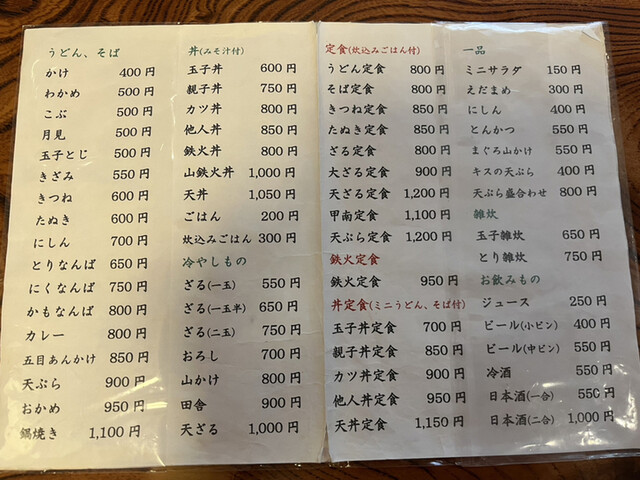 うどん、そば
かけ 400円
わかめ 500円
こぶ 500円
月見 500円
玉子とじ 500円
きざみ 550円
きつね 600円
たぬき 600円
にしん 700円
とりなんば 650円
にくなんば 750円
かもなんば 800円
カレー 800円
五目あんかけ 850円
天ぷら 900円
おかめ 950円
鍋焼き 1,100円
丼(みそ汁付)
玉子丼 600円
親子丼 750円
カツ丼 800円
他人丼 850円
鉄火丼 850円
山鉄火丼 1,000円
天丼 1,050円
ごはん 200円
炊込みごはん 300円
冷やしもの
ざる(一玉) 550円
ざる(一玉半) 650円
ざる(二玉) 750円
おろし 700円
山かけ 800円
田舎 900円
天ざる 1,000円
定食(炊込みごはん付)
うどん定食 800円
そば定食 800円
きつね定食 850円
たぬき定食 850円
ざる定食 800円
大ざる定食 900円
天ざる定食 1,200円
甲南定食 1,100円
天ぷら定食 1,200円
鉄火定食
鉄火定食 950円
丼定食(ミニうどん、そば付)
玉子丼定食 700円
親子丼定食 850円
カツ丼定食 900円
他人丼定食 950円
天丼定食 1,150円
一品
ミニサラダ 150円
えだまめ 300円
にしん 400円
とんかつ 550円
まぐろ山かけ 550円
キスの天ぷら 400円
天ぷら盛合わせ 800円
雑炊
玉子雑炊 650円
とり雑炊 750円
お飲みもの
ジュース 250円
ビール(小ビン) 400円
ビール(中ビン) 550円
冷酒 550円
日本酒(一合) 550円
日本酒(二合) 1,000円